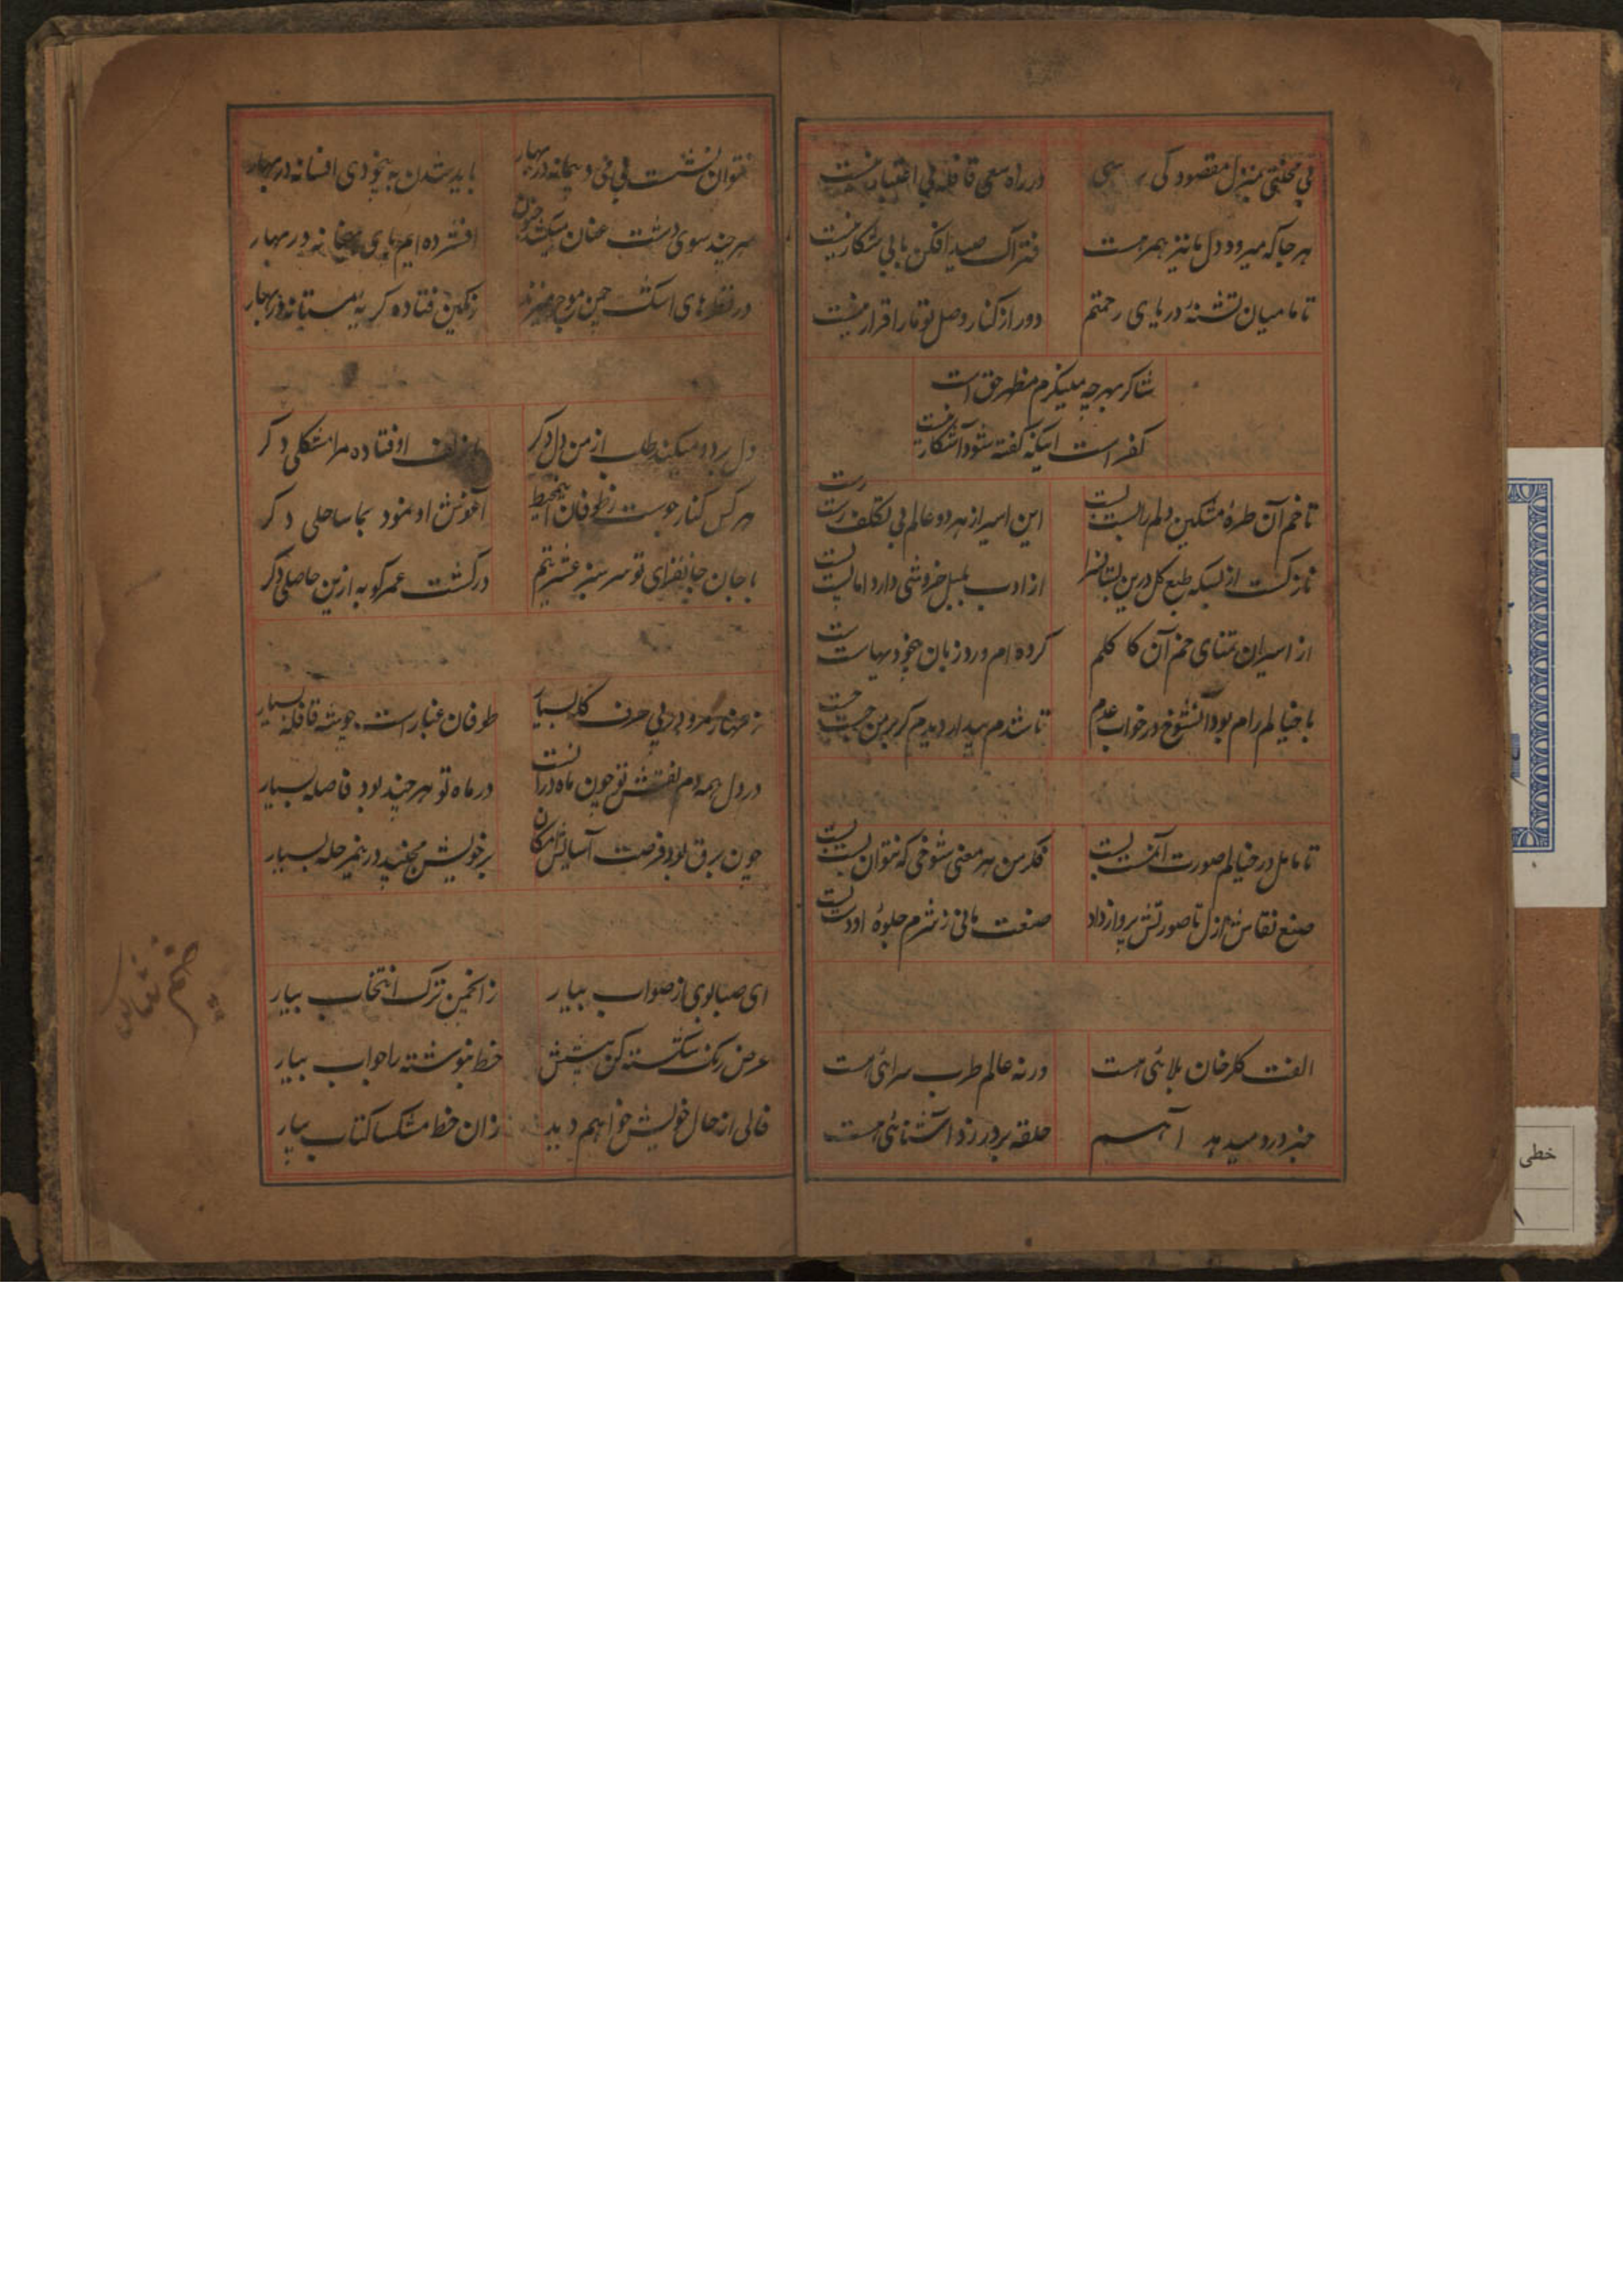 بی محنتی بمنزل مقصود کی رسی
در راه سعی قافله بی اعتبار نیست
هر جا که میرود دل ما نیز همرهست
فتراک صید افکن ما بی شکار نیست
تا ما میان تشنهٔ دریای رحمتیم
دور از کنار وصل تو ما را قرار نیست
شاکر بهرچه مینگرم مظهر حق است
کفر است اینکه گفته شود آشکار نیست
تا خم آن طرهٔ مشکین دلم را بست بست
این اسیر از هر دو عالم بی تکلف رست رست
نازکست از بسکه طبع گل درین بستانسرا
از ادب بلبل خروشی دارد اما پست پست
از اسیران تمنای خم آن کاکلم
کرده ام ورد زبان
با خیالم رام بود آنشوخ در خواب عدم
تا شدم بیدار دیدم کز بر من جست جست
تا مامل در خیالم صورت آئین بست
فکر من هر معنی شوخی که نتوان بست بست
صنع نقاش ازل تا صورتش پرداز داد
صنعت مانی ز شرم جلوهٔ او
الفت گلرخان بلائی هست
ورنه عالم طرب سرائی هست
خبر درد میدهد آهم
حلقه بر در زد آشنائی هست
نتوان نشست بی می و پیمانه در بهار
باید شدن به بیخودی افسانه در بهار
هر چند سوی دشت عنان میکشد جنون
افشرده ایم پای بمیخانه در بهار
در قطرهای اشک چمن موج میزند
رنگین فتاده گریهٔ مستانه در بهار
دل برد و میکند طلب از من دل دگر
از زلف او فتاده مرا مشکلی دگر
هر کس کنار جوست ز طوفان این محیط
آغوش او نمود بما ساحلی دگر
با جان جانفزای تو سرسبز عشرتیم
در کشت عمر کو به ازین حاصلی دگر
حرف گله بسیار
طوفان غبارست قافله بسیار
در دل همه دم نقش تو چون ماه در آبست
در ماه تو هر چند بود فاصله بسیار
چون برق بود فرصت آسایش امکان
بر خویش مچنید درین مرحله بسیار
ای صبا بوی از صواب بیار
ز انجمن ترک انتخاب بیار
عرض رنگ شکسته کن پیشش
خط ننوشته را جواب بیار
فالی از حال خویش خواهم دید
زان خط مشکسا کتاب بیار
خطی